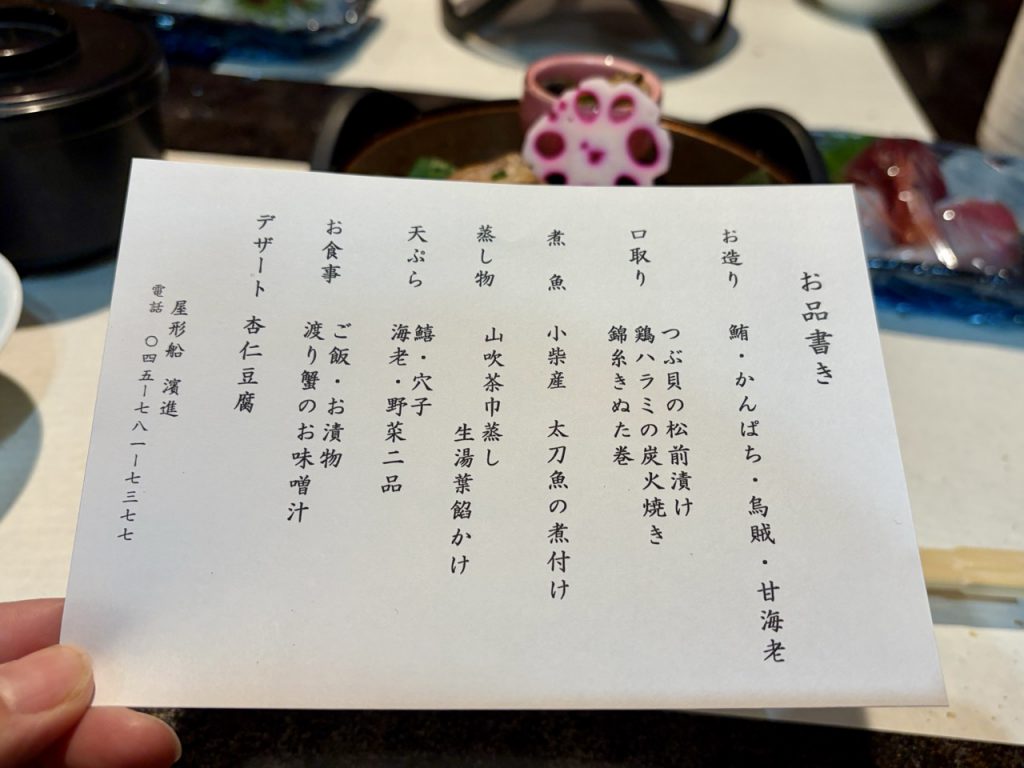 お品書き
お造り 鮪・かんぱち・烏賊・甘海老
口取り つぶ貝の松前漬け
鶏ハラミの炭火焼き
錦糸きぬた巻
煮魚 小柴産 太刀魚の煮付け
蒸し物 山吹茶巾蒸し
生湯葉餡かけ
天ぷら 鱚・穴子
海老・野菜二品
お食事 ご飯・お漬物
渡り蟹のお味噌汁
デザート 杏仁豆腐
屋形船 濱進
電話 〇四五ー七八一ー七三七七